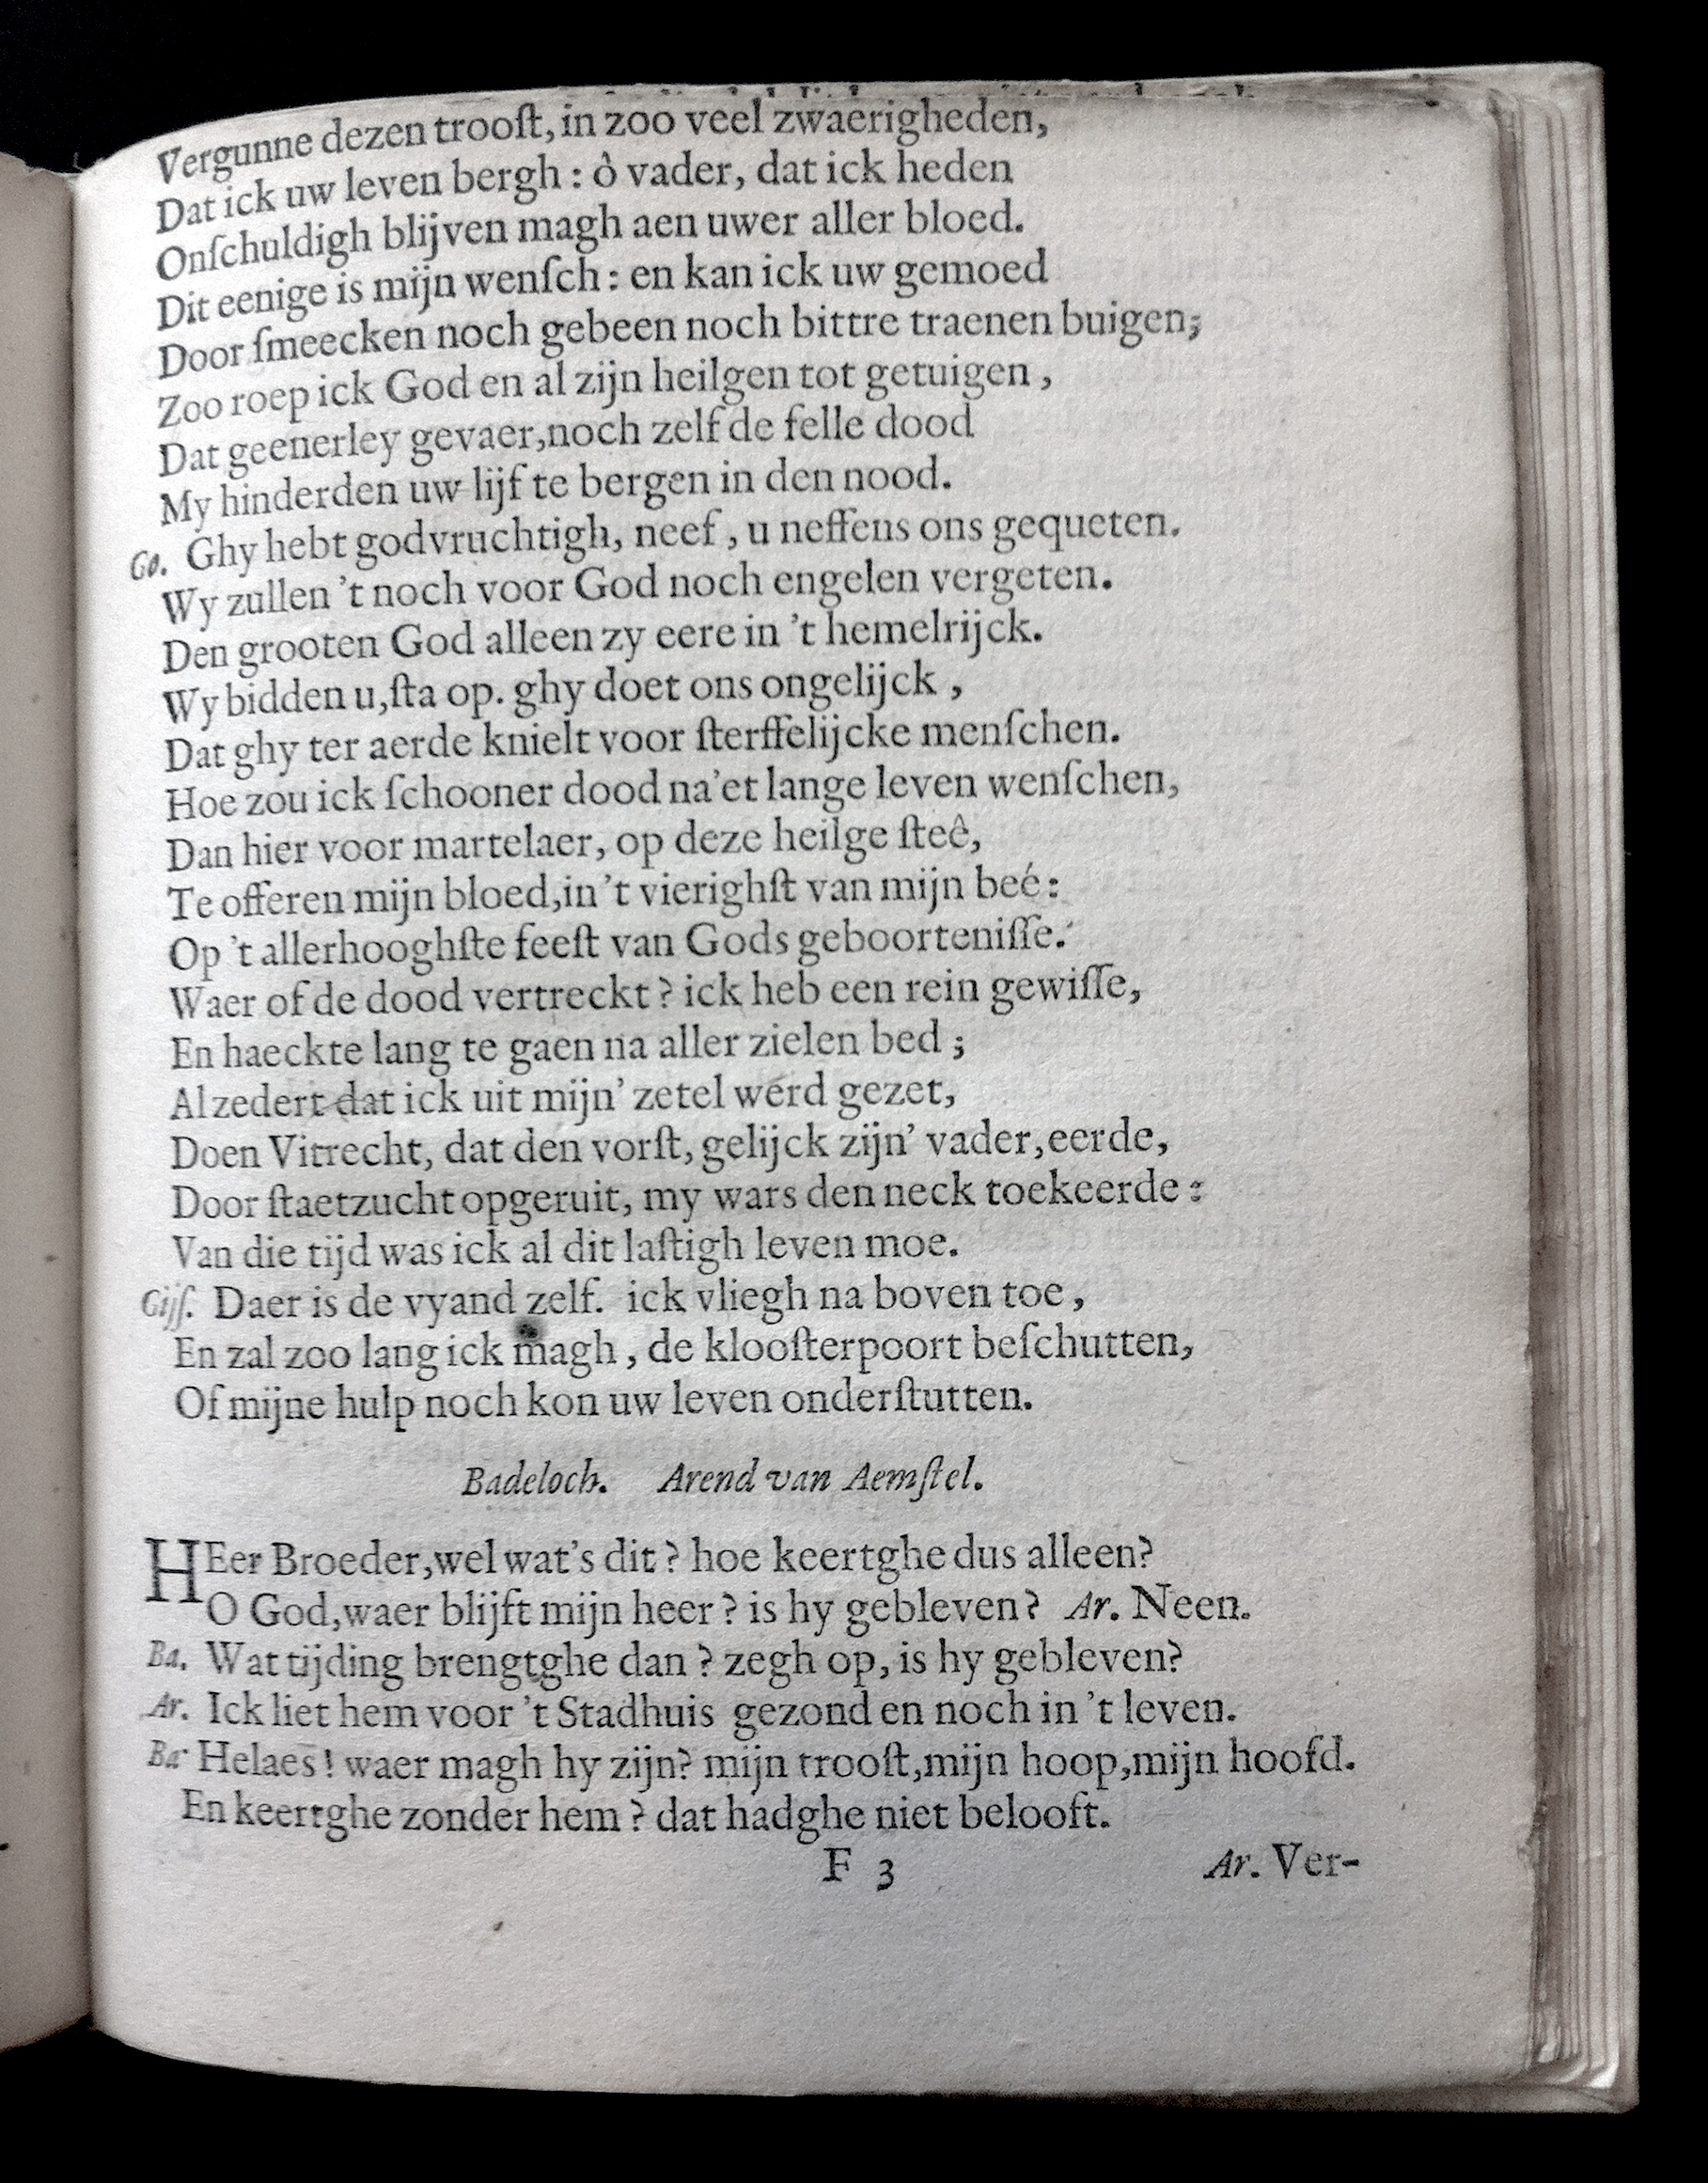 Vergunne dezen trooſt, in zoo veel zwaerigheden,
Dat ick uw leven bergh: ô vader, dat ick heden
Onſchuldigh blijven magh aen uwer aller bloed.
Dit eenige is mijn wenſch: en kan ick uw gemoed
Door ſmeecken noch gebeen noch bittre traenen buigen;
Zoo roep ick God en al zijn heilgen tot getuigen,
Dat geenerley gevaer, noch zelf de felle dood
My hinderden uw lijf te bergen in den nood.
Go. Ghy hebt godvruchtigh, neef, u neffens ons gequeten.
Wy zullen 't noch voor God noch engelen vergeten.
Den grooten God alleen zy eere in 't hemelrijck.
Wy bidden u, ſta op. ghy doet ons ongelijck,
Dat ghy ter aerde knielt voor ſterffelijcke menſchen.
Hoe zou ick ſchooner dood na'et lange leven wenſchen,
Dan hier voor martelaer, op deze heilge ſteê,
Te offeren mijn bloed, in 't vierighſt van mijn beé:
Op 't allerhooghſte feeſt van Gods geborteniſſe.
Waer of de dood vertreckt? ick heb een rein gewiſſe,
En haeckte lang te gaen na aller zielen bed;
Al zedert dat ick uit mijn' zetel werd gezet,
Doen Vitrecht, dat den vorſt, gelijck zijn' vader, eerde,
Door ſtaetzucht opgeruit, my wars den neck toekeerde:
Van die tijd was ick al dit laſtigh leven moe.
Gijſ. Daer is de vyand zelf. ick vliegh na boven toe,
En zal zoo lang ick magh, de klooſterpoort beſchutten,
Of mijne hulp noch kon uw leven onderſtutten.
Badeloch. Arend van Aemſtel.
HEer Broeder, wel wat's dit? hoe keertghe dus alleen?
O God, waer blijft mijn heer? is hy gebleven? Ar. Neen.
Ba. Wat tijding brengtghe dan? zegh op, is hy gebleven?
Ar. Ick liet hem voor 't Stadhuis gezond en noch in 't leven.
Ba. Helaes! waer magh hy zijn? mijn trooſt, mijn hoop, mijn hoofd.
En keertghe zonder hem? dat hadghe niet belooft.
F 3 Ar. Ver-